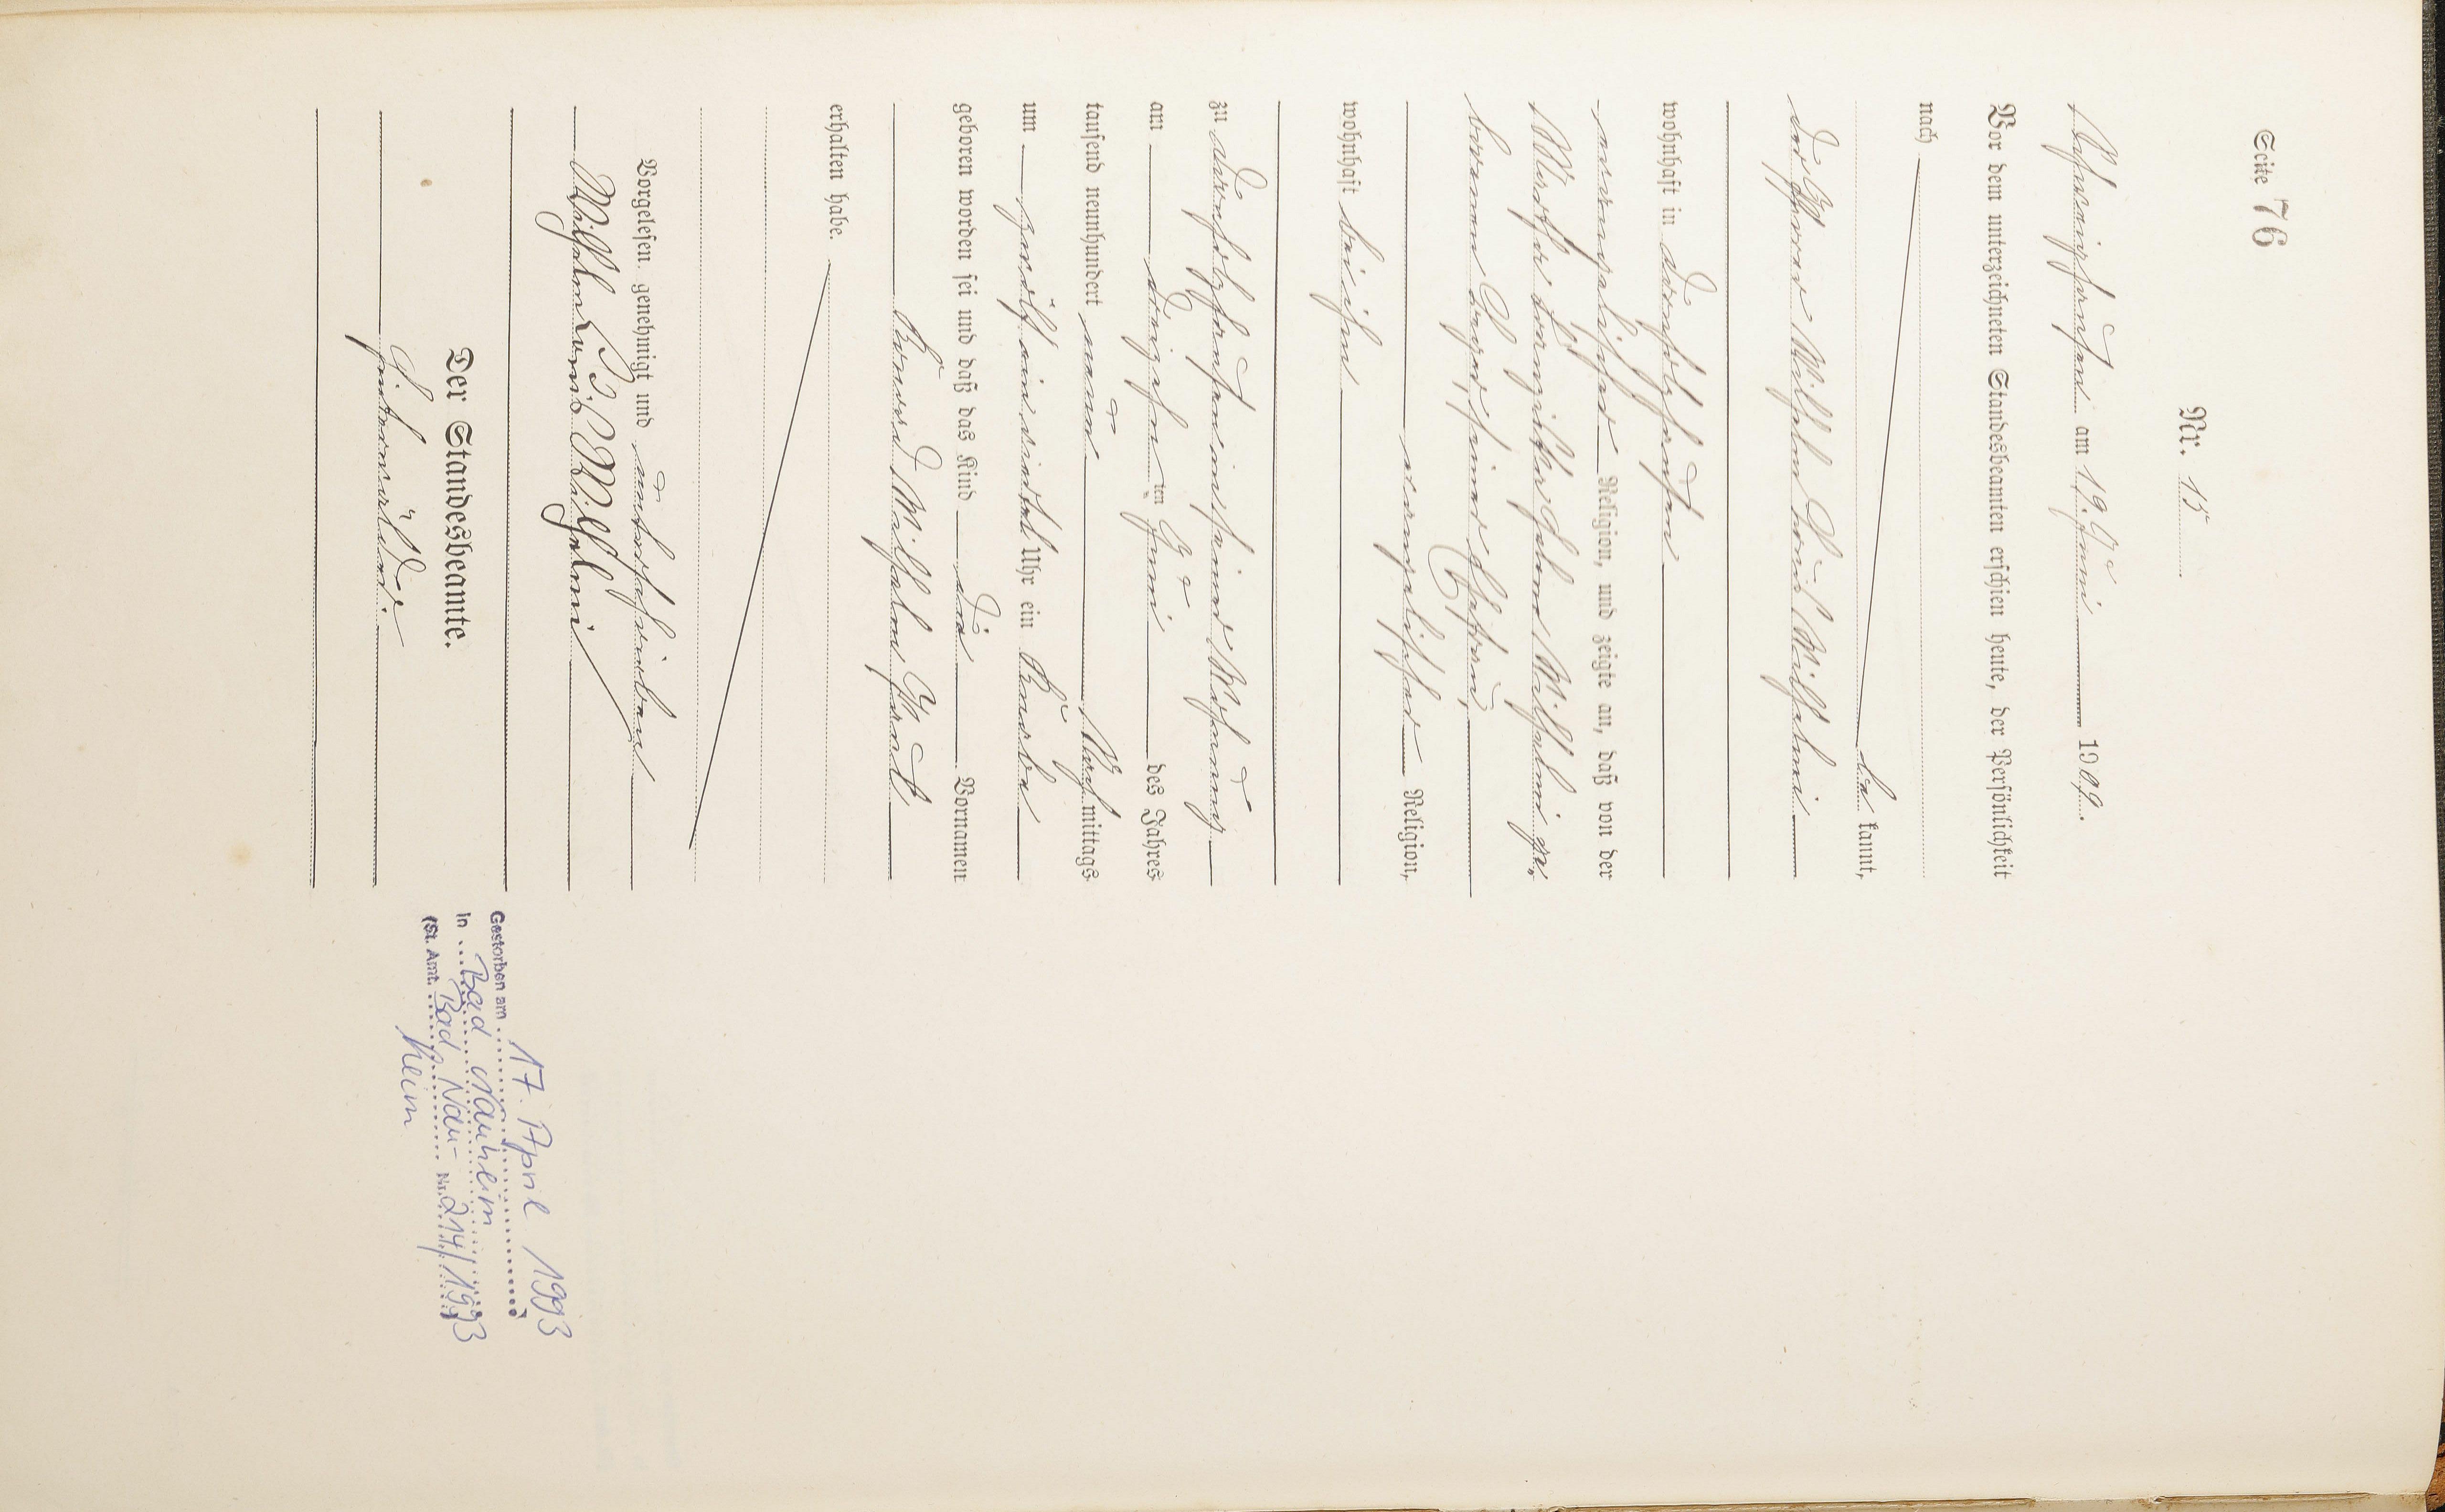 Seite 76
Nr. 15
am 19. Juni 1909.
Vor dem unterzeichneten Standesbeamten erschien heute, der Persönlichkeit
nach
be kannt,
der Pfarrer Wilhelm Louis Wilhelmi
wohnhaft in Dornholzhausen
evangelischer Religion, und zeigte an, daß von der
Wilhelmi ge-
borenen seiner Ehefrau,
evangelischer Religion,
wohnhaft bei ihm
zu Dornholzhausen in seiner Wohnung
am dreizehn ten Juni des Jahres
tausend neunhundert neun Nach mittags
um zwölf ein viertel Uhr ein Knabe
geboren worden sei und daß das Kind die Vornamen
Konrad Wilhelm
erhalten habe.
Vorgelesen, genehmigt und unterschrieben
Wilhelm Louis Wilhelmi
Der Standesbeamte.
Gestorben am 17. April 1993
in Bad Nauheim
(St. Amt. Bad Nau- Nr. 214/1993
heim